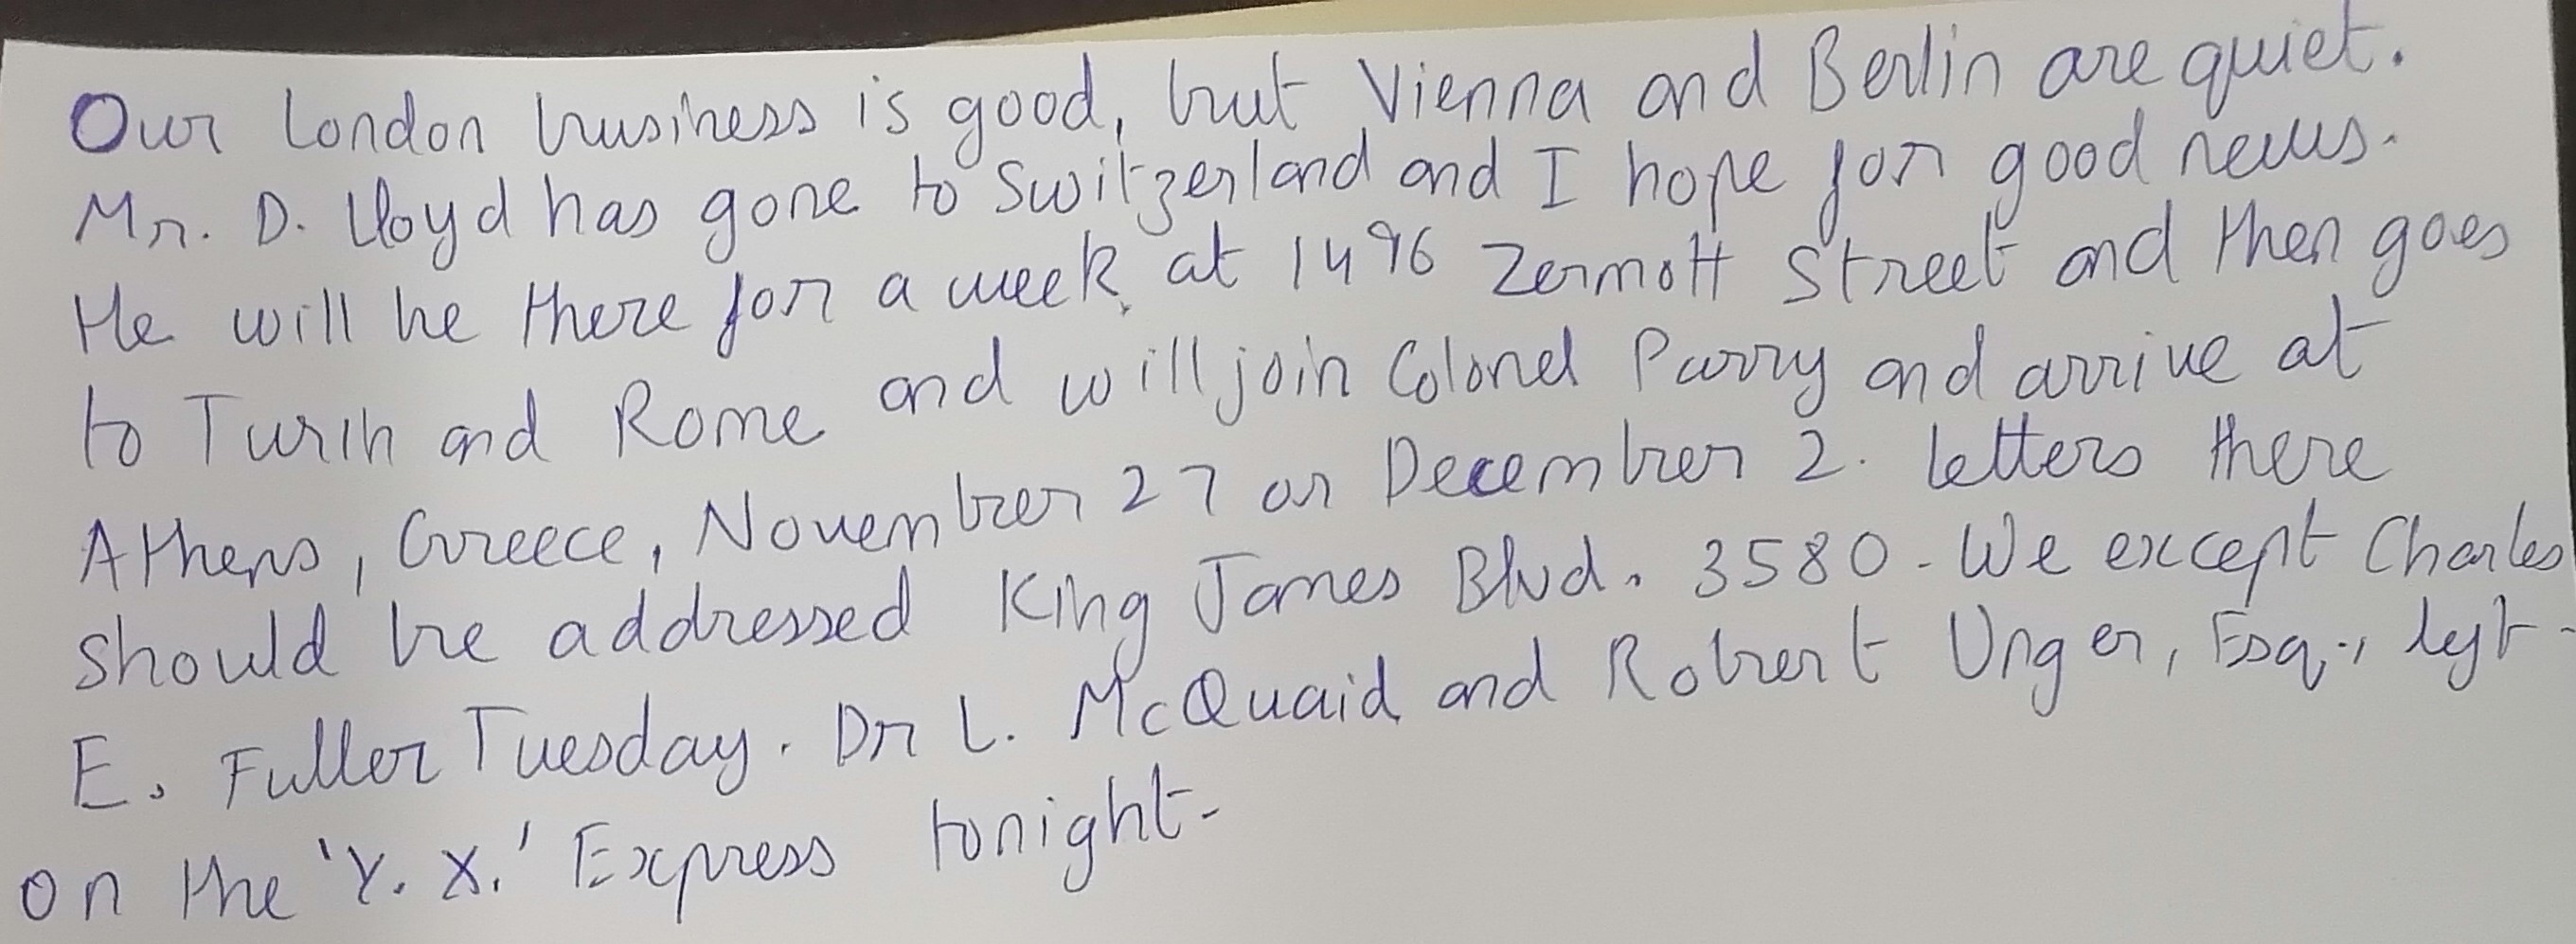 Our London business is good, but Vienna and Berlin are quiet.
Mr. D. Lloyd has gone to Switzerland and I hope for good news.
He will be there for a week at 1496 Zermott Street and then goes
to Turin and Rome and will join Colonel Parry and arrive at
Athens, Greece, November 27 or December 2. Letters there
should be addressed King James Blvd. 3580. We except Charles
E. Fuller Tuesday. Dr L. McQuaid and Robert Unger, Esq., left
on the 'Y. X.' Express tonight.